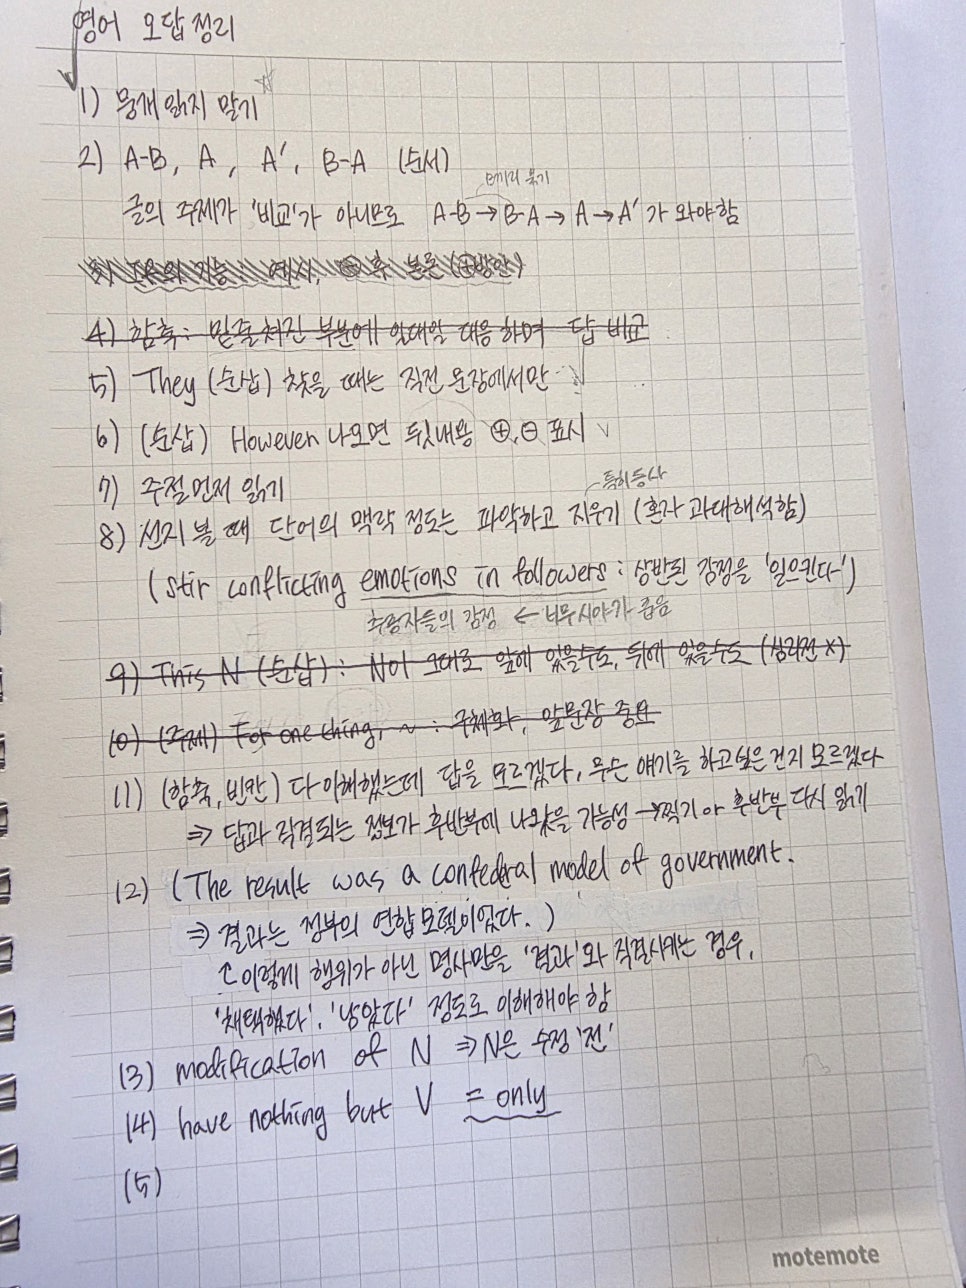 영어 오답정리
1) 뭉개 읽지 말기
2) A-B, A, A', B-A (순서)
B끼리 묶기
글의 주제가 '비교'가 아니므로 A-B → B-A → A → A' 가 와야함
예시, 후 본론 (방안)
4) 함축: 밑줄쳐진 부분에 일대일 대응 하며 답 비교
5) They (순삽) 찾을 때는 직전 문장에서만
6) (순삽) However 나오면 뒷내용 ⊕,⊖ 표시
7) 주절먼저 읽기
특히 동사
8) 선지 볼 때 단어의 맥락 정도는 파악하고 지우기 (혼자 과대해석함)
(stir conflicting emotions in followers : 상반된 감정을 '일으킨다')
추종자들의 감정 ← 너무 시야가 좁음
9) This N (순삽) : N이 그대로 앞에 있을수도, 뒤에 있을수도 (심리전 x)
10) (주제) For one thing, ~ : 구체화, 앞문장 중요
11) (함축, 빈칸) 다 이해했는데 답을 모르겠다, 무슨 얘기를 하고싶은 건지 모르겠다
⇒ 답과 직결되는 정보가 후반부에 나왔을 가능성 → 찍기 전 후반부 다시 읽기
12) (The result was a confederal model of government.
⇒ 결과는 정부의 연합 모델이었다.)
이렇게 행위가 아닌 명사만을 '결과'와 직결시키는 경우,
'채택했다', '낳았다' 정도로 이해해야 함
13) modification of N ⇒ N은 수정 '전'
14) have nothing but V = only
15)
motemote